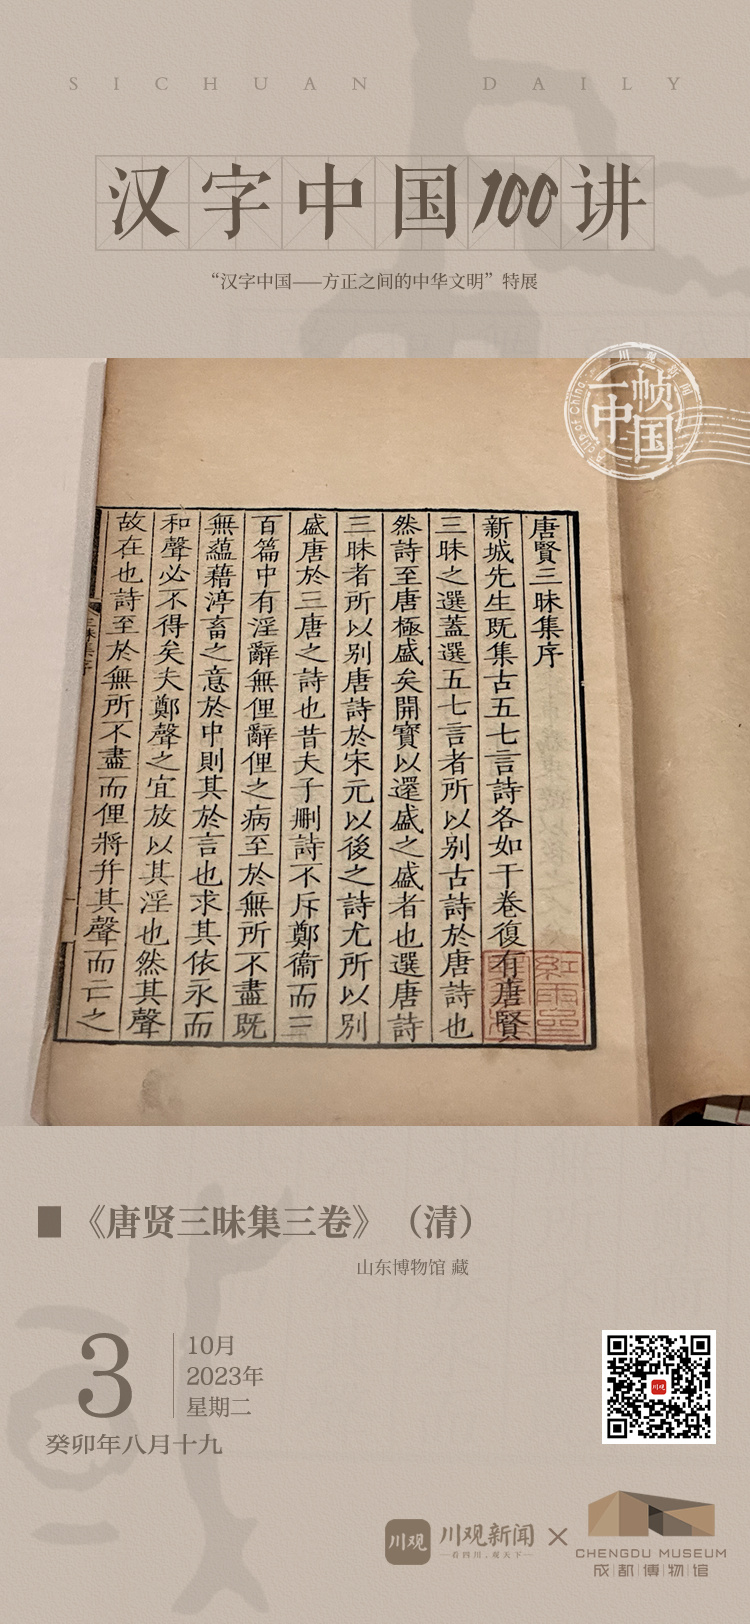 SICHUAN DAILY
汉字中国100讲
“汉字中国——方正之间的中华文明”特展
川观新闻
一帧
中国
A clip of China
唐賢三昧集序
新城先生既集古五七言詩各如干卷復有唐賢
三昧之選蓋選五七言者所以别古詩於唐詩也
然詩至唐極盛矣開寶以還盛之盛者也選唐詩
三昧者所以别唐詩於宋元以後之詩尤所以别
盛唐於三唐之詩也昔夫子刪詩不斥鄭衞而三
百篇中有淫辭無俚辭俚之病至於無所不盡既
無蘊藉渟畜之意於中則其於言也求其依永而
和聲必不得矣夫鄭聲之宜放以其淫也然其聲
故在也詩至於無所不盡而俚將并其聲而亡之
三昧集序
《唐贤三昧集三卷》（清）
山东博物馆 藏
3
10月
2023年
星期二
癸卯年八月十九
川观
川观新闻
—看四川，观天下—
×
CHENGDU MUSEUM
成都博物馆